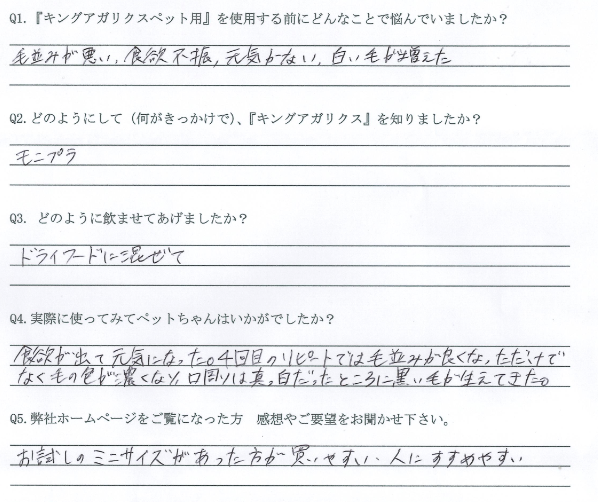 Q1.『キングアガリクスペット用』を使用する前にどんなことで悩んでいましたか？
毛並みが悪い，食欲不振，元気がない，白い毛が増えた
Q2.どのようにして（何がきっかけで）、『キングアガリクス』を知りましたか？
モニプラ
Q3. どのように飲ませてあげましたか？
ドライフードに混ぜて
Q4.実際に使ってみてペットちゃんはいかがでしたか？
食欲が出て元気になった。4回目のリピートでは毛並みが良くなっただけで
なく毛の色が濃くなり、口周りは真っ白だったところに黒い毛が生えてきた。
Q5.弊社ホームページをご覧になった方　感想やご要望をお聞かせ下さい。
お試しのミニサイズがあった方が買いやすい、人にすすめやすい